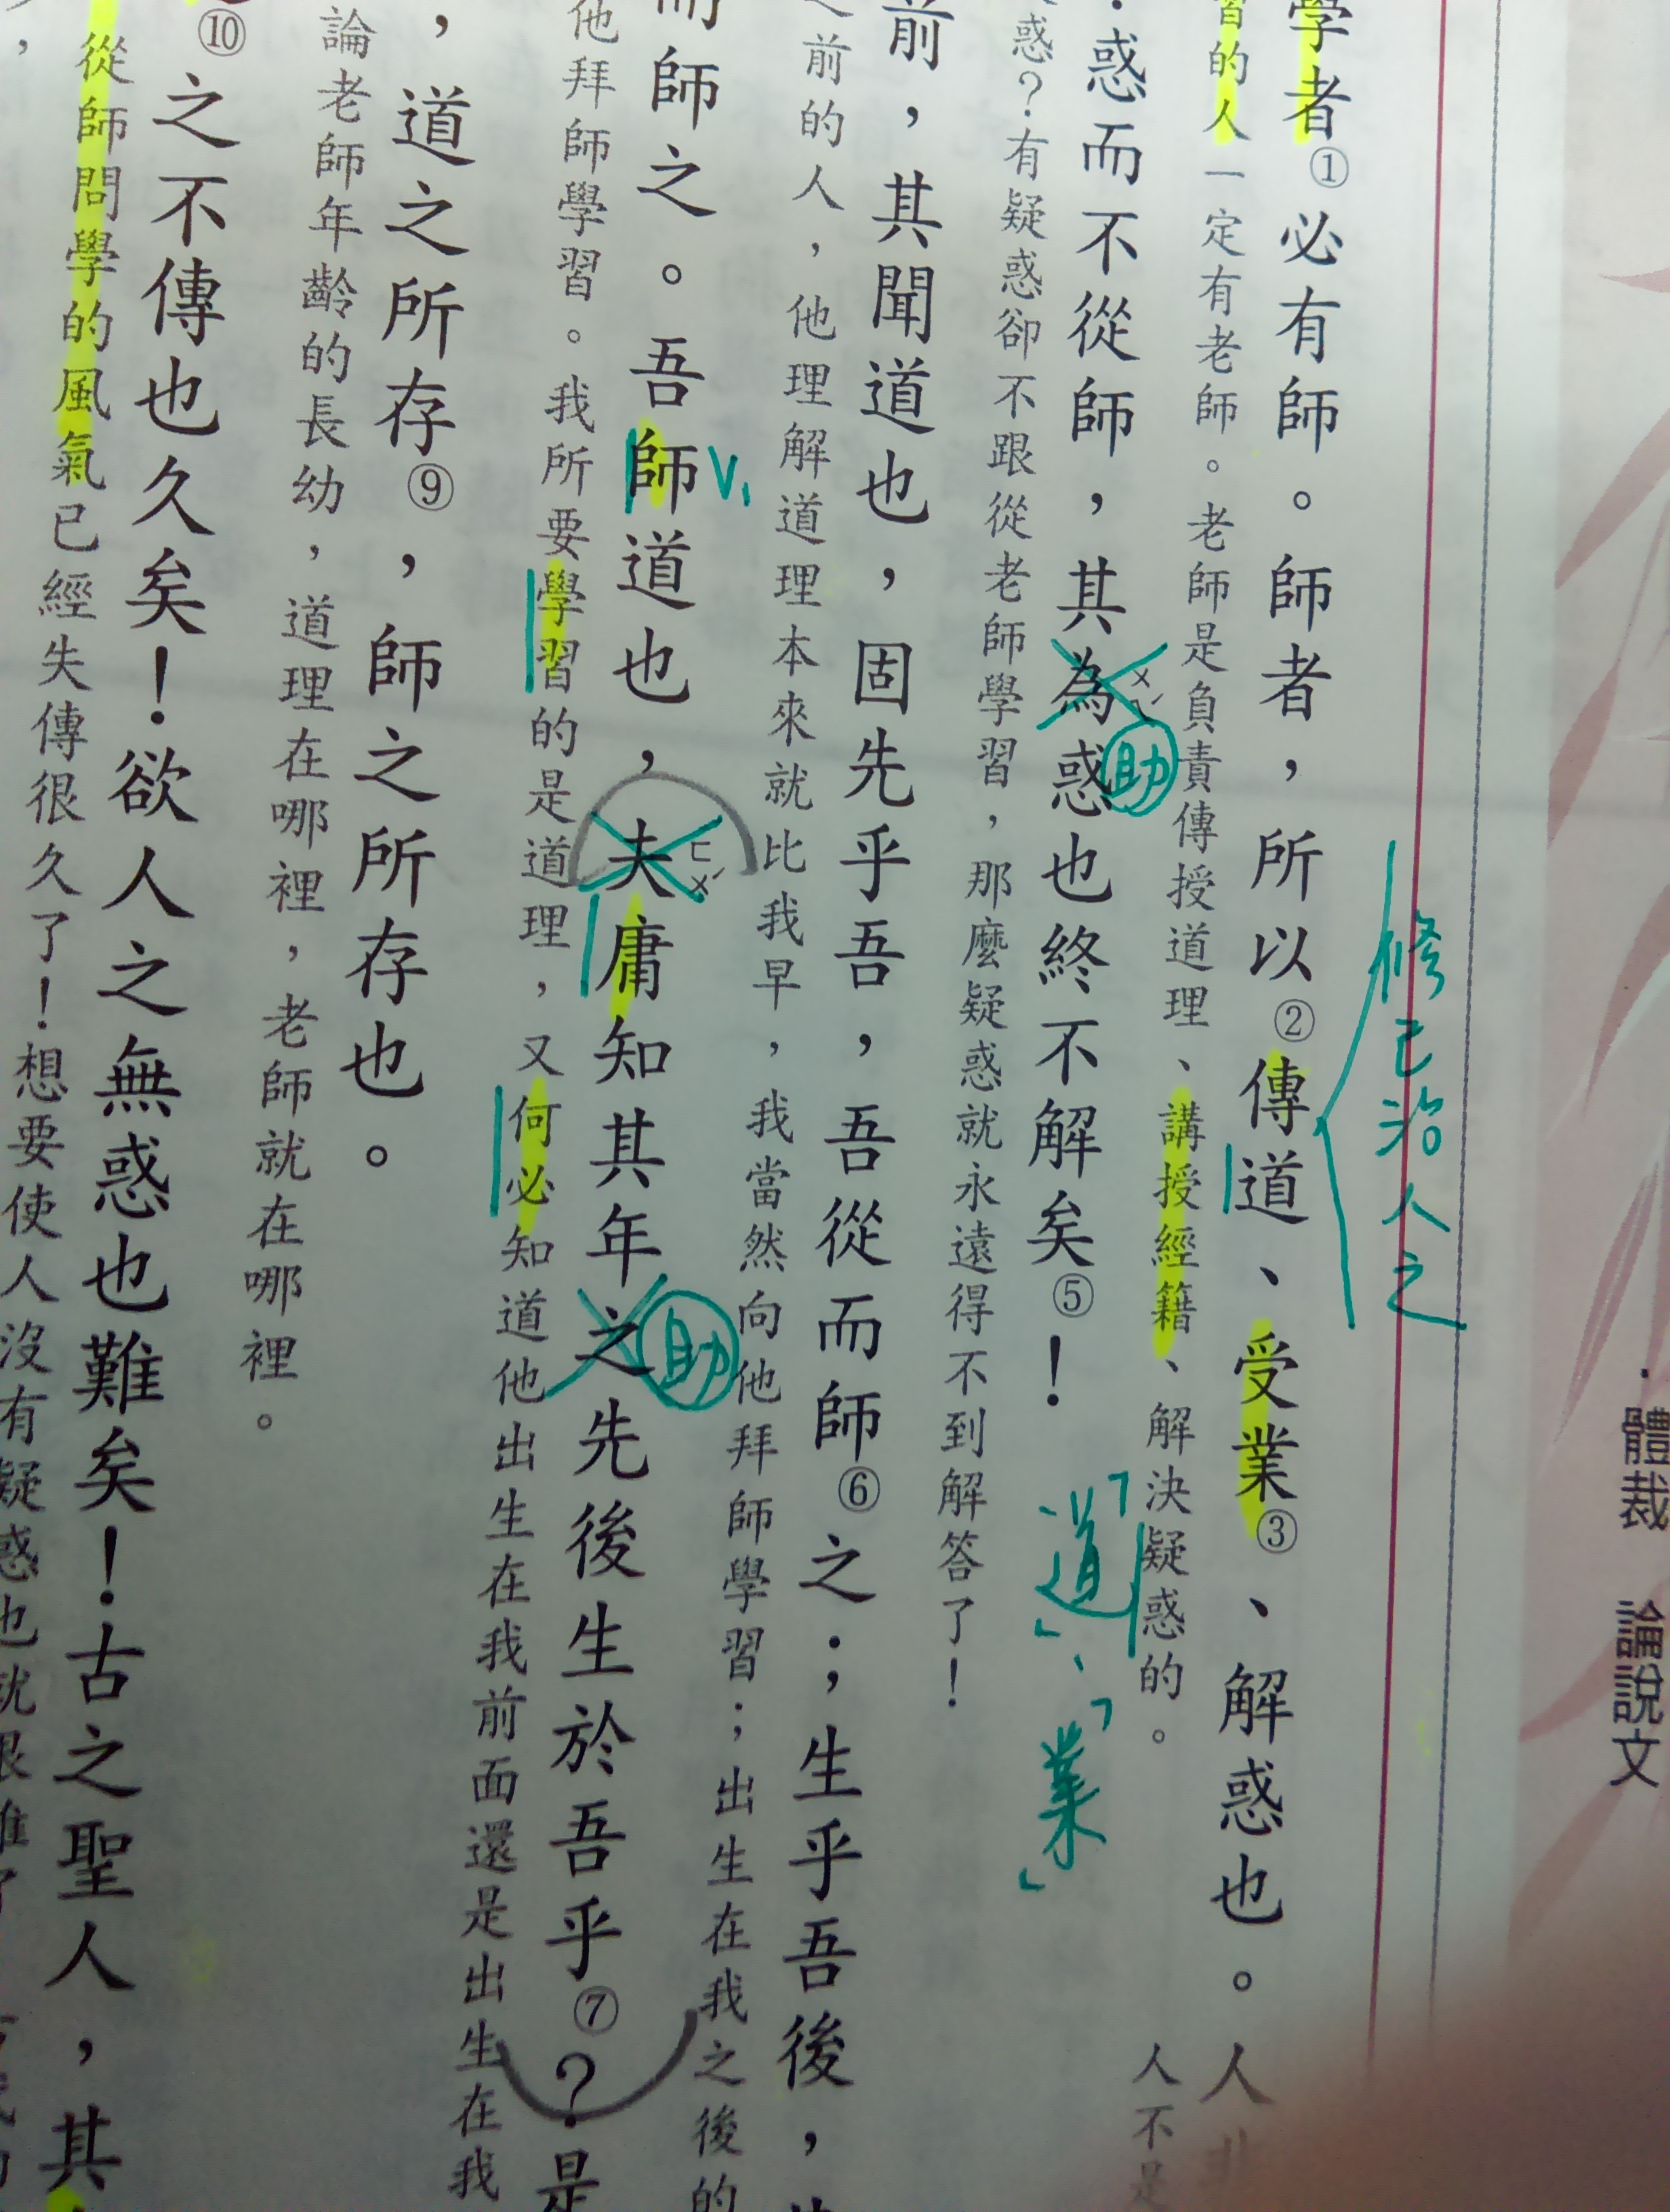 ・體裁 論說文
修己治人之
學者①必有師。師者，所以②傳道、受業③、解惑也。人
習的人一定有老師。老師是負責傳授道理、講授經籍、解決疑惑的。 人不是
惑而不從師，其為ㄨㄟˊ惑也終不解矣⑤！
助
「道」、「業」
惑？有疑惑卻不跟從老師學習，那麼疑惑就永遠得不到解答了！
前，其聞道也，固先乎吾，吾從而師⑥之；生乎吾後，
之前的人，他理解道理本來就比我早，我當然向他拜師學習；出生在我之後的
而師之。吾師道也，夫ㄈㄨˊ庸知其年之先後生於吾乎⑦？是
V.
助
他拜師學習。我所要學習的是道理，又何必知道他出生在我前面還是出生在我
，道之所存⑨，師之所存也。
論老師年齡的長幼，道理在哪裡，老師就在哪裡。
⑩之不傳也久矣！欲人之無惑也難矣！古之聖人，其
從師問學的風氣已經失傳很久了！想要使人沒有疑惑也就很難了